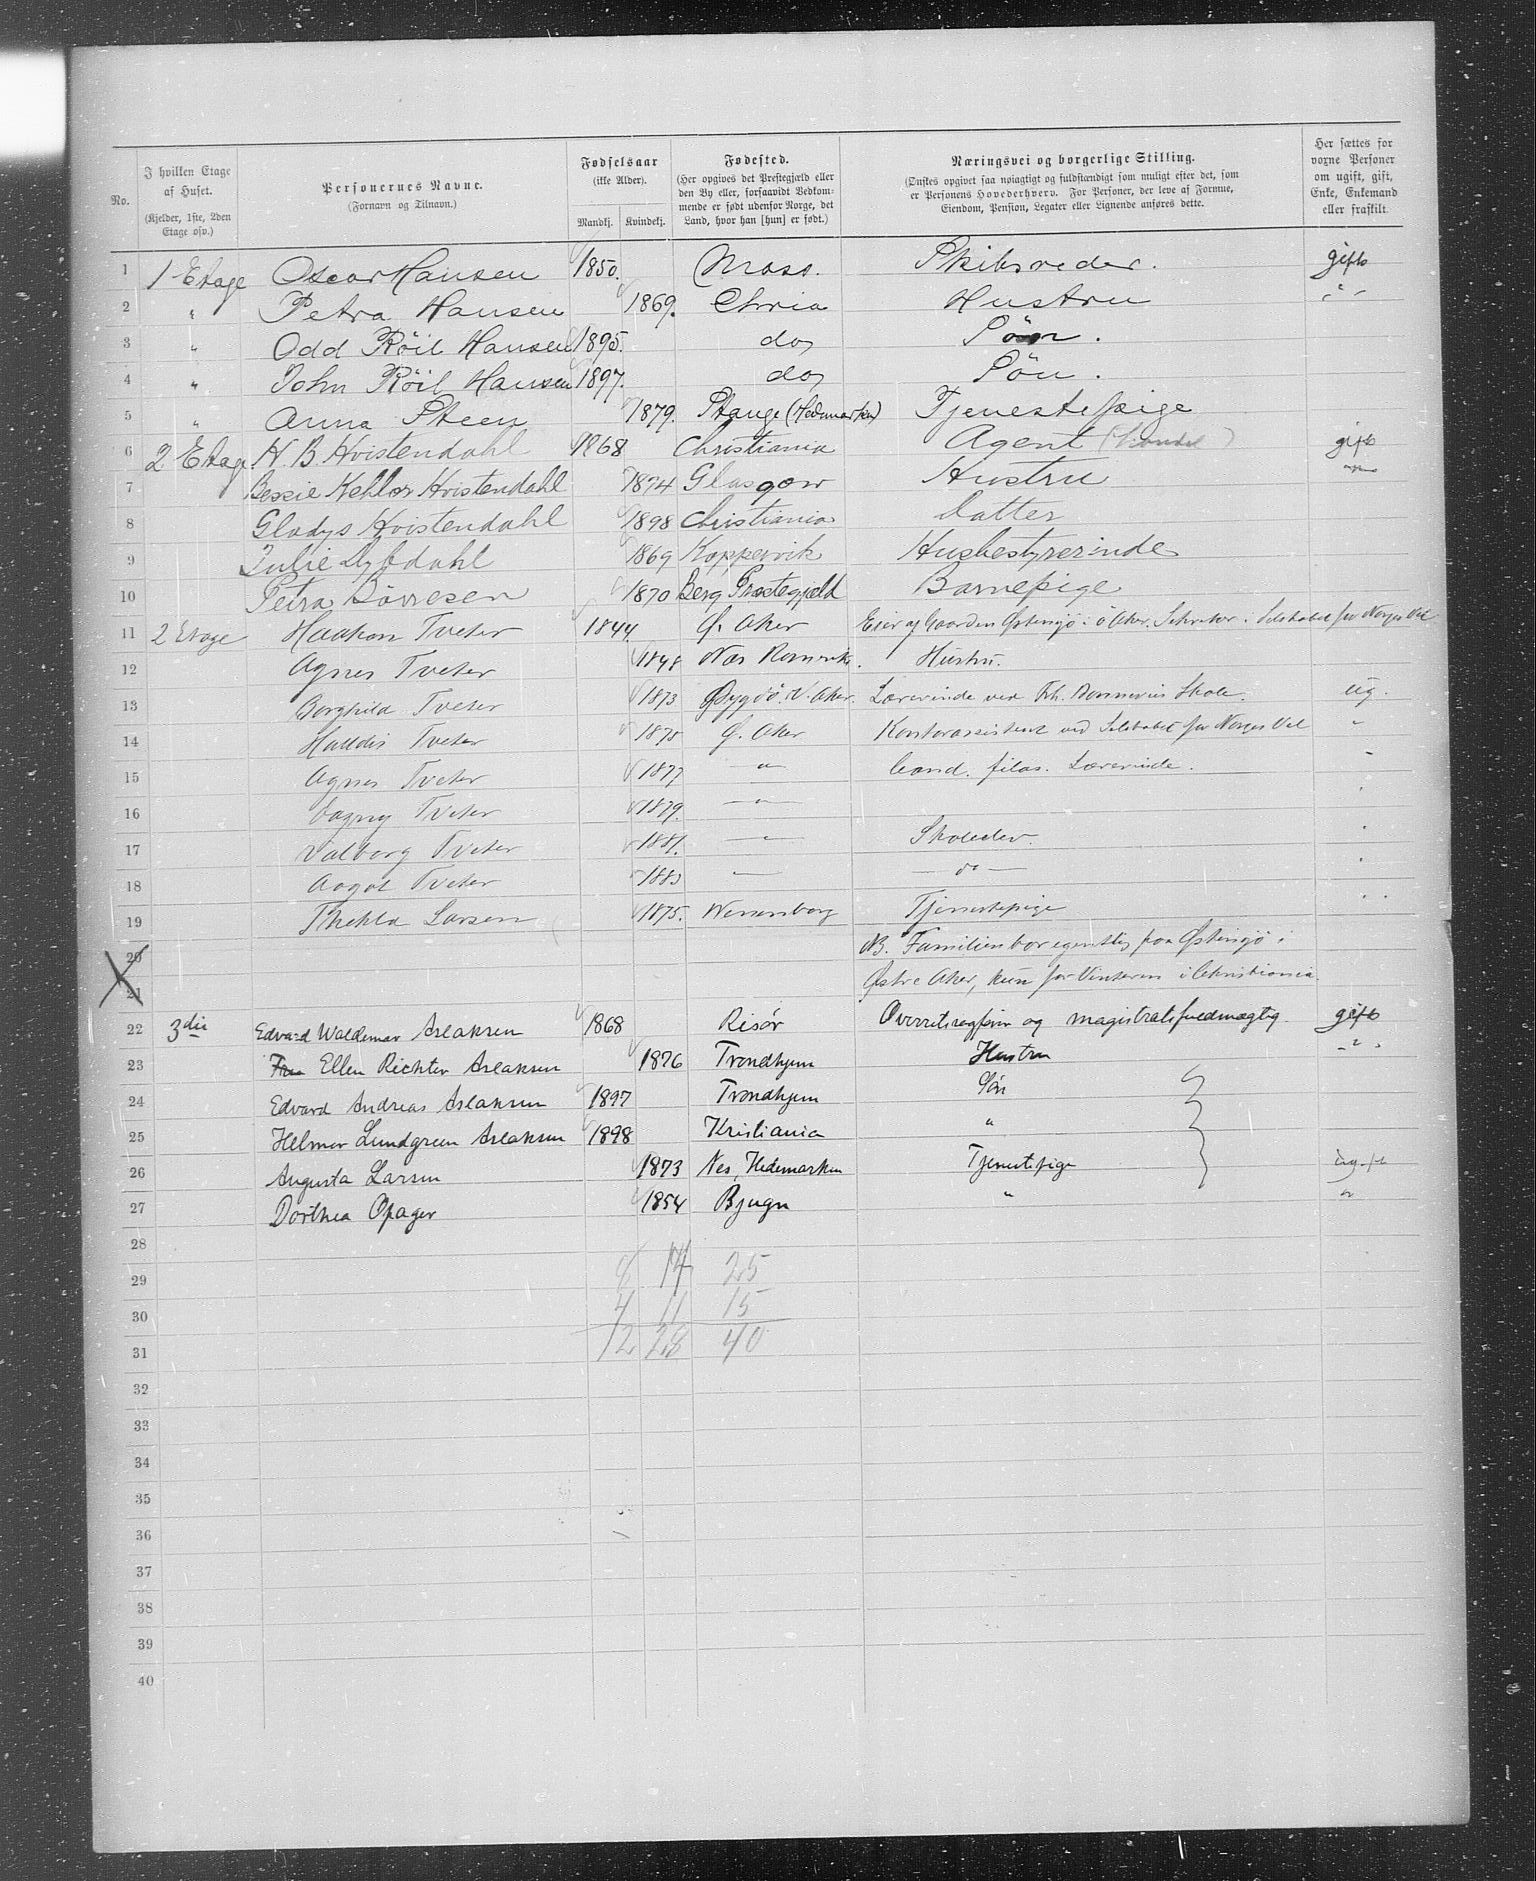 No.
I hvilken Etage af Huset.
(Kjelder, 1ste, 2den Etage osv.)
Personernes Navne.
(Fornavn og Tilnavn.)
Fødselsaar
(ikke Alder).
Mandkj. Kvindekj.
Fødested.
(Her opgives det Prestegjæld eller
den By eller, forsaavidt Vedkom-
mende er født udenfor Norge, det
Land, hvor han [hun] er født.)
Næringsvei og borgerlige Stilling.
(Ønskes opgivet saa nøiagtigt og fuldstændigt som muligt efter det, som
er Personens Hovederhverv. For Personer, der leve af Formue,
Eiendom, Pension, Legater eller Lignende anføres dette.
Her sættes for
voxne Personer
om ugift, gift,
Enke, Enkemand
eller fraskilt.
1 1 Etage Oscar Hansen 1850. Moss. Skibsreder. gift
2 " Petra Hansen 1869. Chria Hustru - " -
3 " Odd Röil Hansen 1895. do, Sön.
4 " John Röil Hansen 1897. do, Sön.
5 " Anna Steen 1879. Stange (Hedemarken) Tjenestepige
6 2 Etage H B Hvistendahl 1868 Christiania Agent (Handel) gift
7 Bessie Kehlor Hvistendahl 1874 Glasgow Hustru
8 Gladys Hvistendahl 1898 Christiania Datter
9 Julie Dybdahl 1869 Koppervik Husbestyrerinde
10 Petra Börresen 1870 Berg Prestegjeld Barnepige
11 2 Etage Haakon Tveter 1844. Ø. Aker Eier af Gaarden Østensjö i Ö Aker. Sekretær i Selskabet for Norges Vel
12 Agnes Tveter 1848 Nes Romerike. Hustru.
13 Borghild Tveter 1873 Bygdö. V. Aker. Lærerinde ved Frk. Bonnevies Skole. ug.
14 Halldis Tveter 1875 Ø. Aker Kontorassistent ved Selskabet for Norges Vel "
15 Agnes Tveter 1877 — " — Cand. filos. Lærerinde. "
16 Dagny Tveter 1879. — " — '
17 Valborg Tveter 1881. — " — Skoleelev. '
18 Aagot Tveter 1883 — — do — '
19 Thekla Larsen 1875. Wenersborg Tjenestepige
20 NB. Familien bor egentlig paa Østensjö i
21 Østre Aker, kun for Vinteren i Christiania.
22 3die Edvard Waldemar Aslaksen 1868 Risør Overretssagfører og magistratsfuldmægtig. gift
23 Frue Ellen Richter Aslaksen 1876 Trondhjem Hustru - " -
24 Edvard Andreas Aslaksen 1897 Trondhjem Søn
25 Helmer Lundgreen Aslaksen 1898 Kristiania "
26 Augusta Larsen 1873 Nes, Hedemarken Tjenestepige ugift
27 Dorthea Opager 1854 Bjugn " "
28
29 8 17 25
30 4 11 15
31 12 28 40
32
33
34
35
36
37
38
39
40